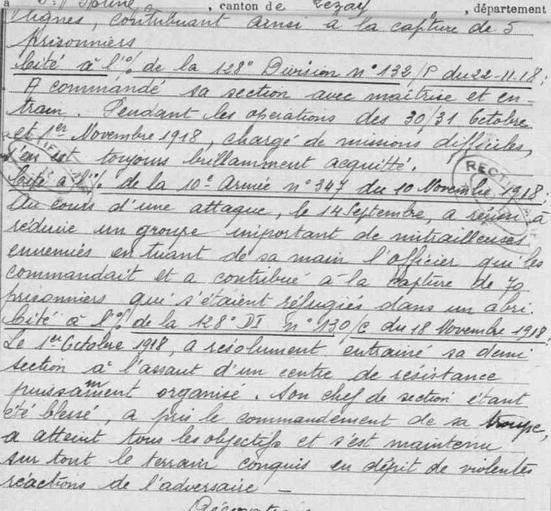 à St Sorine, canton de Lezay, département
lignes, contribuant ainsi à la capture de 5
prisonniers
Cité à l'o/ de la 128e Division n° 132/P du 22-11-18:
A commandé sa section avec maîtrise et en-
train. Pendant les operations des 30/31 Octobre
et 1er Novembre 1918, chargé de missions difficiles,
s'en est toujours brillamment acquitté.
RECTI
Cité à l'o/ de la 10e Armée n° 347 du 10 Novembre 1918:
Au cours d'une attaque, le 14 Septembre, a réussi à
réduire un groupe important de mitrailleuses
ennemies en tuant de sa main l'officier qui les
commandait et a contribué à la capture de 70
prisonniers qui s'étaient réfugiés dans un abri.
Cité à l'o/ de la 128e DI n° 130/C du 18 Novembre 1918
Le 1er Octobre 1918, a résolument entrainé sa demi
section à l'assaut d'un centre de résistance
puissamment organisé. Son chef de section étant
été blessé, a pris le commandement de sa troupe,
a atteint tous les objectifs et s'est maintenu
sur tout le terrain conquis en dépit de violentes
réactions de l'adversaire -